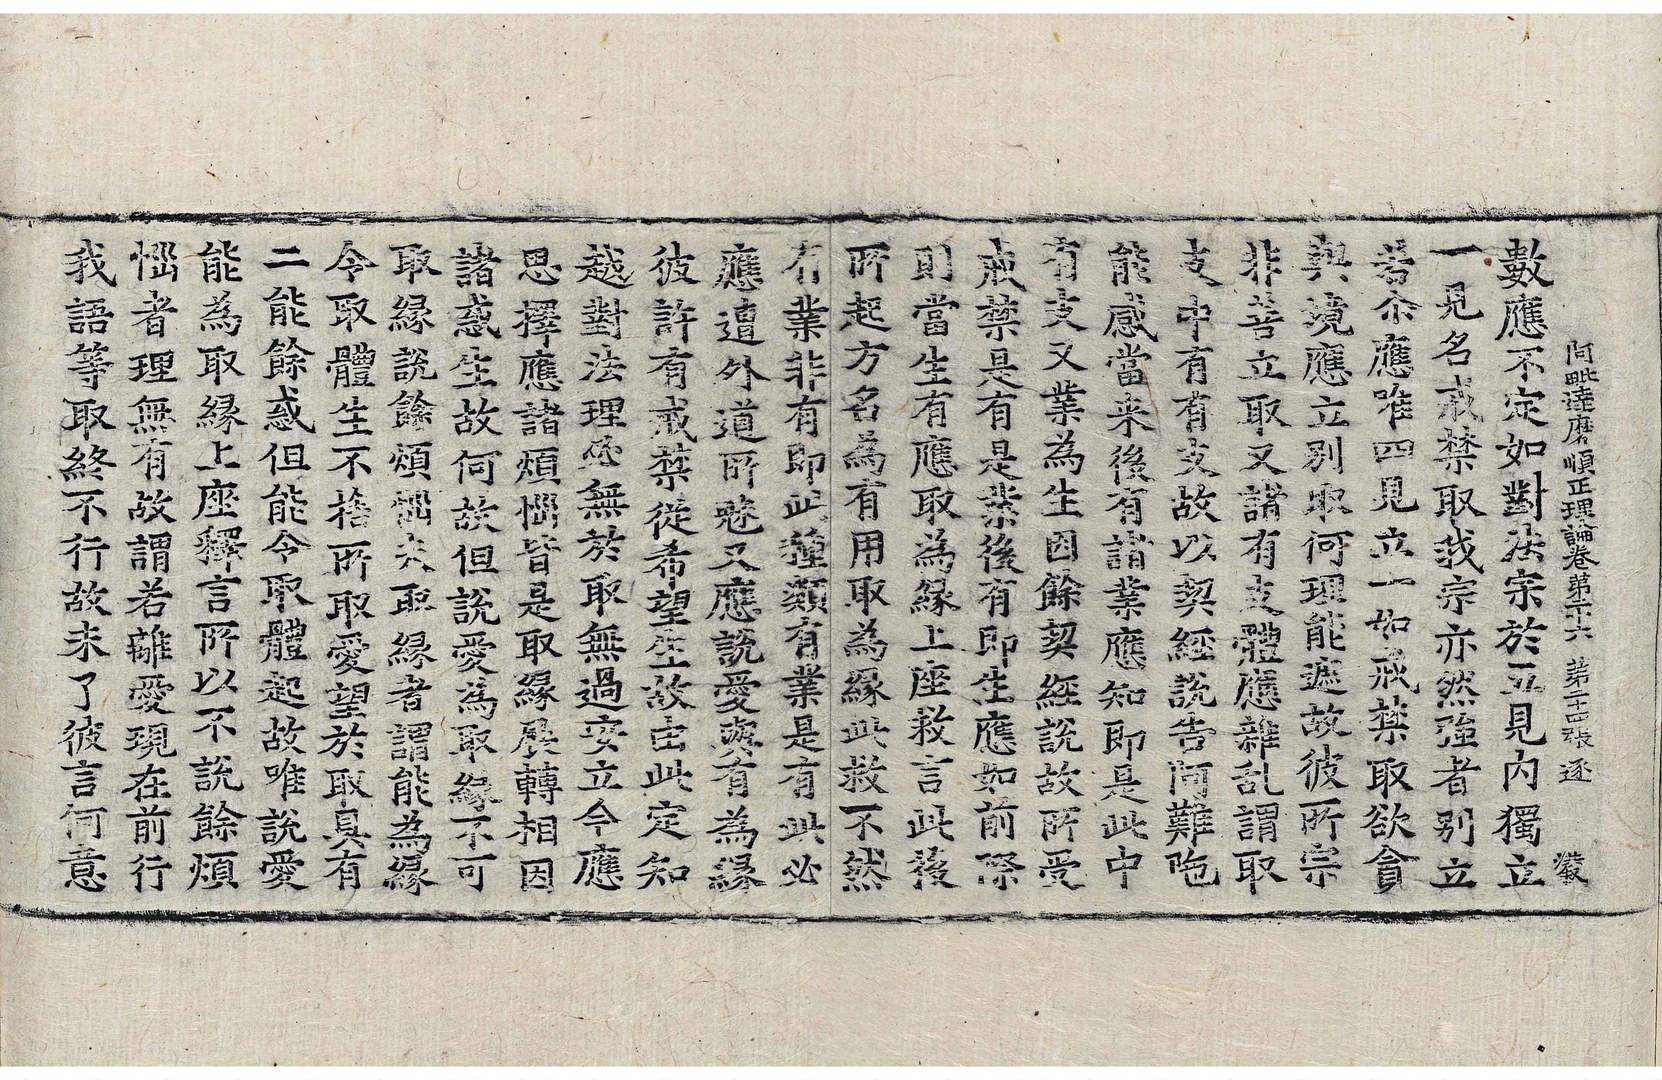 阿毗達磨順正理論卷第二十六 第二十四張 逐
數應不定如對法宗於五見內獨立
一見名戒禁取我宗亦然強者別立
若尒應唯四見立一如戒禁取欲貪
與境應立別取何理能遮故彼所宗
非善立取又諸有支體應雜乱謂取
支中有有支故以契經說告阿難陁
能感當来後有諸業應知即是此中
有支又業為生因餘契經說故所受
戒禁是有是業後有即生應如前際
則當生有應取為縁上座救言此後
所起方名為有用取為縁此救不然
有業非有即此種類有業是有此必
應遭外道所魅又應說愛與有為縁
彼許有戒禁從希望生故由此定知
越對法理必無於取無過安立今應
思擇應諸煩惱皆是取縁展轉相因
諸惑生故何故但說愛為取縁不可
取縁說餘煩惱夫取縁者謂能為縁
令取體生不捨所取愛望於取具有
二能餘惑但能令取體起故唯說愛
能為取縁上座釋言所以不說餘煩
惱者理無有故謂若離愛現在前行
我語等取終不行故未了彼言何意